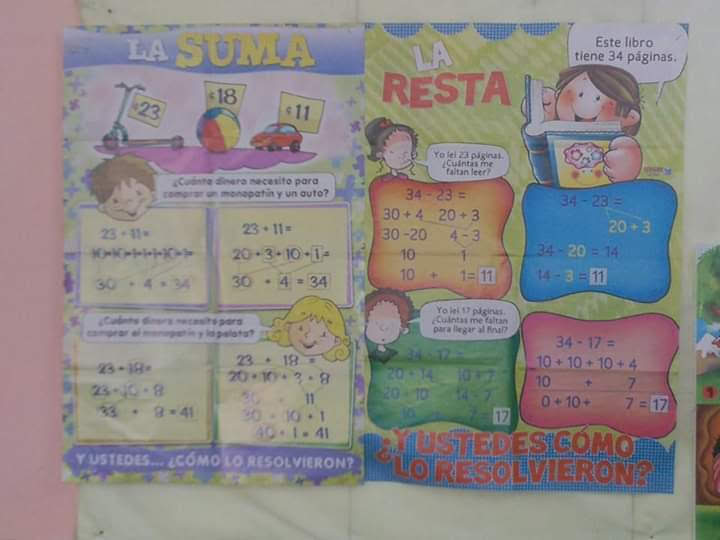 LA SUMA
$23
$18
$11
¿Cuánto dinero necesito para
comprar un monopatín y un auto?
23 + 11=
10+10+1+1+1+10+1=
30 + 4 = 34
23 + 11=
20 + 3 + 10 + 1 =
30 + 4 = 34
¿Cuánto dinero necesito para
comprar el monopatín y la pelota?
23 + 18=
23 + 10 + 8
33 + 8 = 41
23 + 18 =
20 + 10 + 3 + 8
30 + 11
30 + 10 + 1
40 + 1 = 41
Y USTEDES... ¿CÓMO LO RESOLVIERON?
LA
RESTA
Este libro
tiene 34 páginas.
Yo leí 23 páginas.
¿Cuántas me
faltan leer?
34 - 23 =
30 + 4 20 + 3
30 -20 4 - 3
10 1
10 + 1= 11
34 - 23 =
20 + 3
34 - 20 = 14
14 - 3 = 11
Yo leí 17 páginas.
¿Cuántas me faltan
para llegar al final?
34 - 17 =
20 + 14 10 + 7
20 - 10 14 - 7
10 + 7 = 17
34 - 17 =
10 + 10 + 10 + 4
10 + 7
0 + 10 + 7 = 17
¿Y USTEDES CÓMO
LO RESOLVIERON?
1